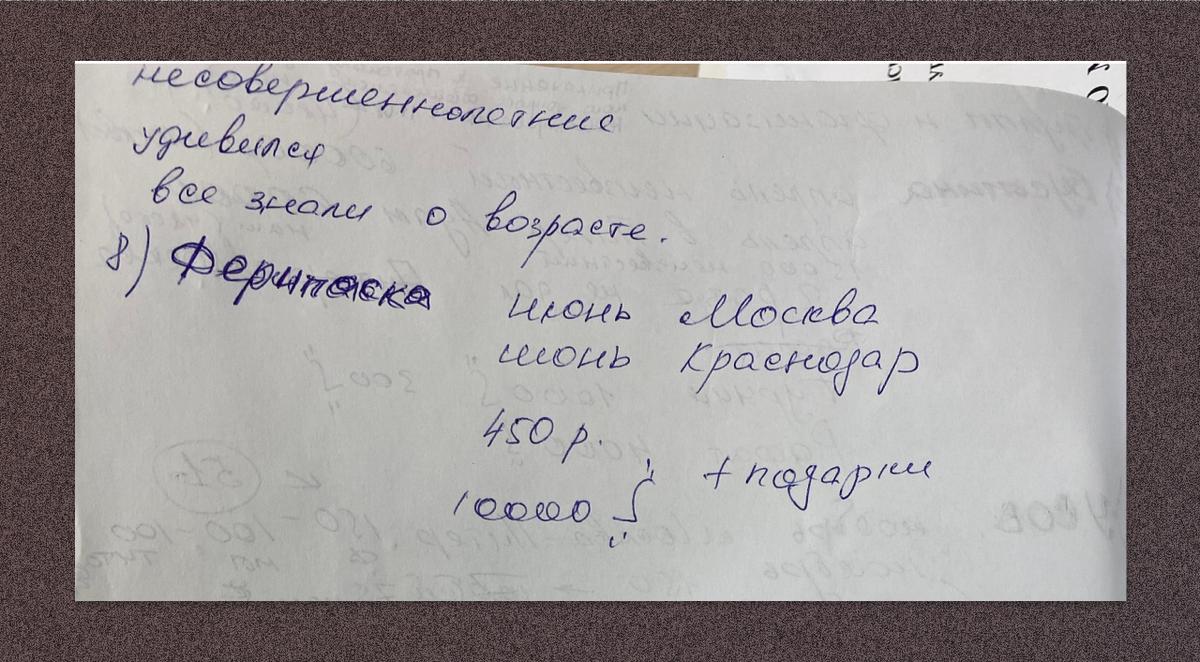 несовершеннолетние
удивился
все знали о возрасте.
8)
июнь Москва
июнь Краснодар
450 р.
10000 + подарки